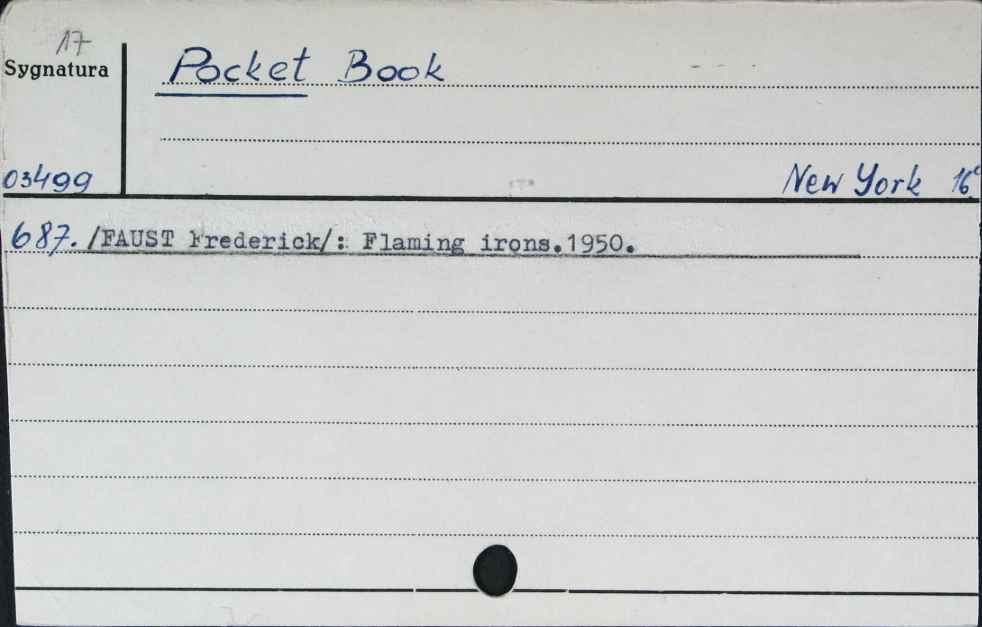 17
Sygnatura
Pocket Book
03499
New York 16°
687. /FAUST Frederick/: Flaming irons.1950.